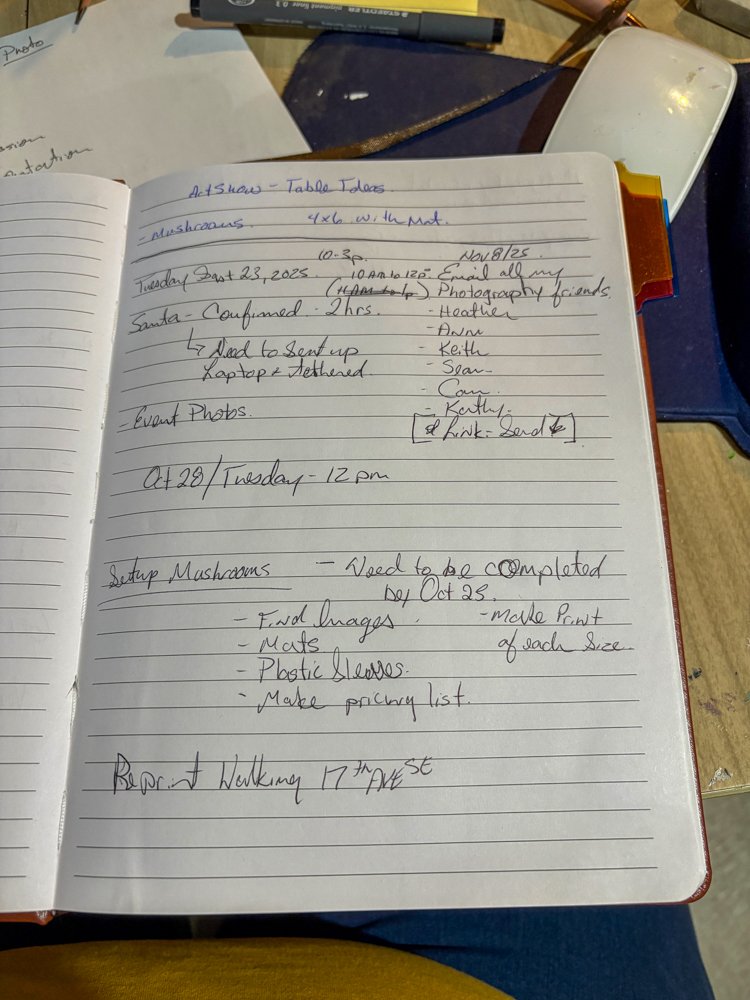 Photo
STAEDTLER pigment liner 0.3
Art Show - Table Ideas.
- Mushrooms. 4x6 with Mat.
10-3p. Nov 8/25.
Tuesday 23, 2025. 10 AM to 12p - Email all my
(11AM to 1p) Photography friends.
Santa - Confirmed - 2hrs. - Heather
- Ann
↳ Need to Sent up - Keith
Laptop + Tethered. - Sean
- Cam
- Event Photos. - Kathy.
[Link - Send]
Oct 28/Tuesday - 12 pm
Setup Mushrooms - Need to be completed
by Oct 25.
- Find Images. - Make Print
- Mats of each Size.
- Plastic Sleeves.
- Make pricing list.
Reprint Walking 17th AVE SE